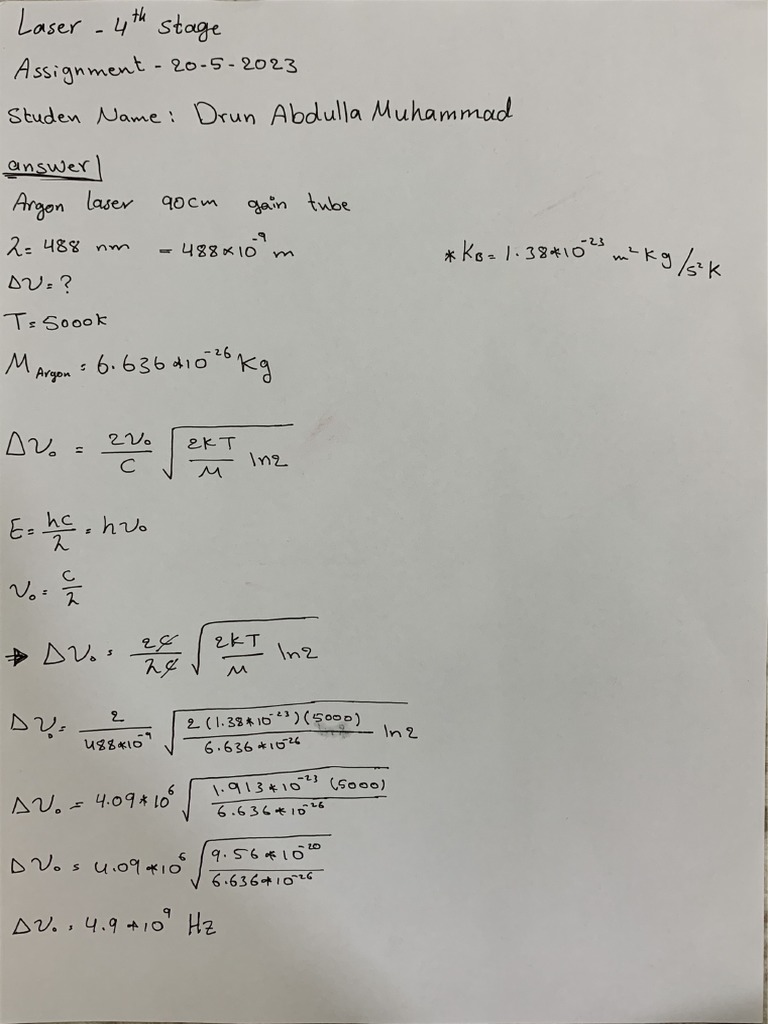 Laser - 4th stage
Assignment - 20-5-2023
Studen Name: Drun Abdulla Muhammad
answer
Argon laser 90cm gain tube
λ = 488 nm = 488*10^-9 m
* K_B = 1.38*10^-23 m² Kg/s² K
Δν = ?
T = 5000k
M_Argon = 6.636*10^-26 Kg
Δν₀ = 2ν₀/C √(2kT/M ln2)
E = hc/λ = hν₀
ν₀ = c/λ
→ Δν₀ = 2c/λc √(2kT/M ln2)
Δν₀ = 2/488*10^-9 √(2(1.38*10^-23)(5000)/6.636*10^-26 ln2)
Δν₀ = 4.09*10^6 √(1.913*10^-23 (5000)/6.636*10^-26)
Δν₀ = 4.09*10^6 √(9.56*10^-20/6.636*10^-26)
Δν₀ = 4.9*10^9 Hz